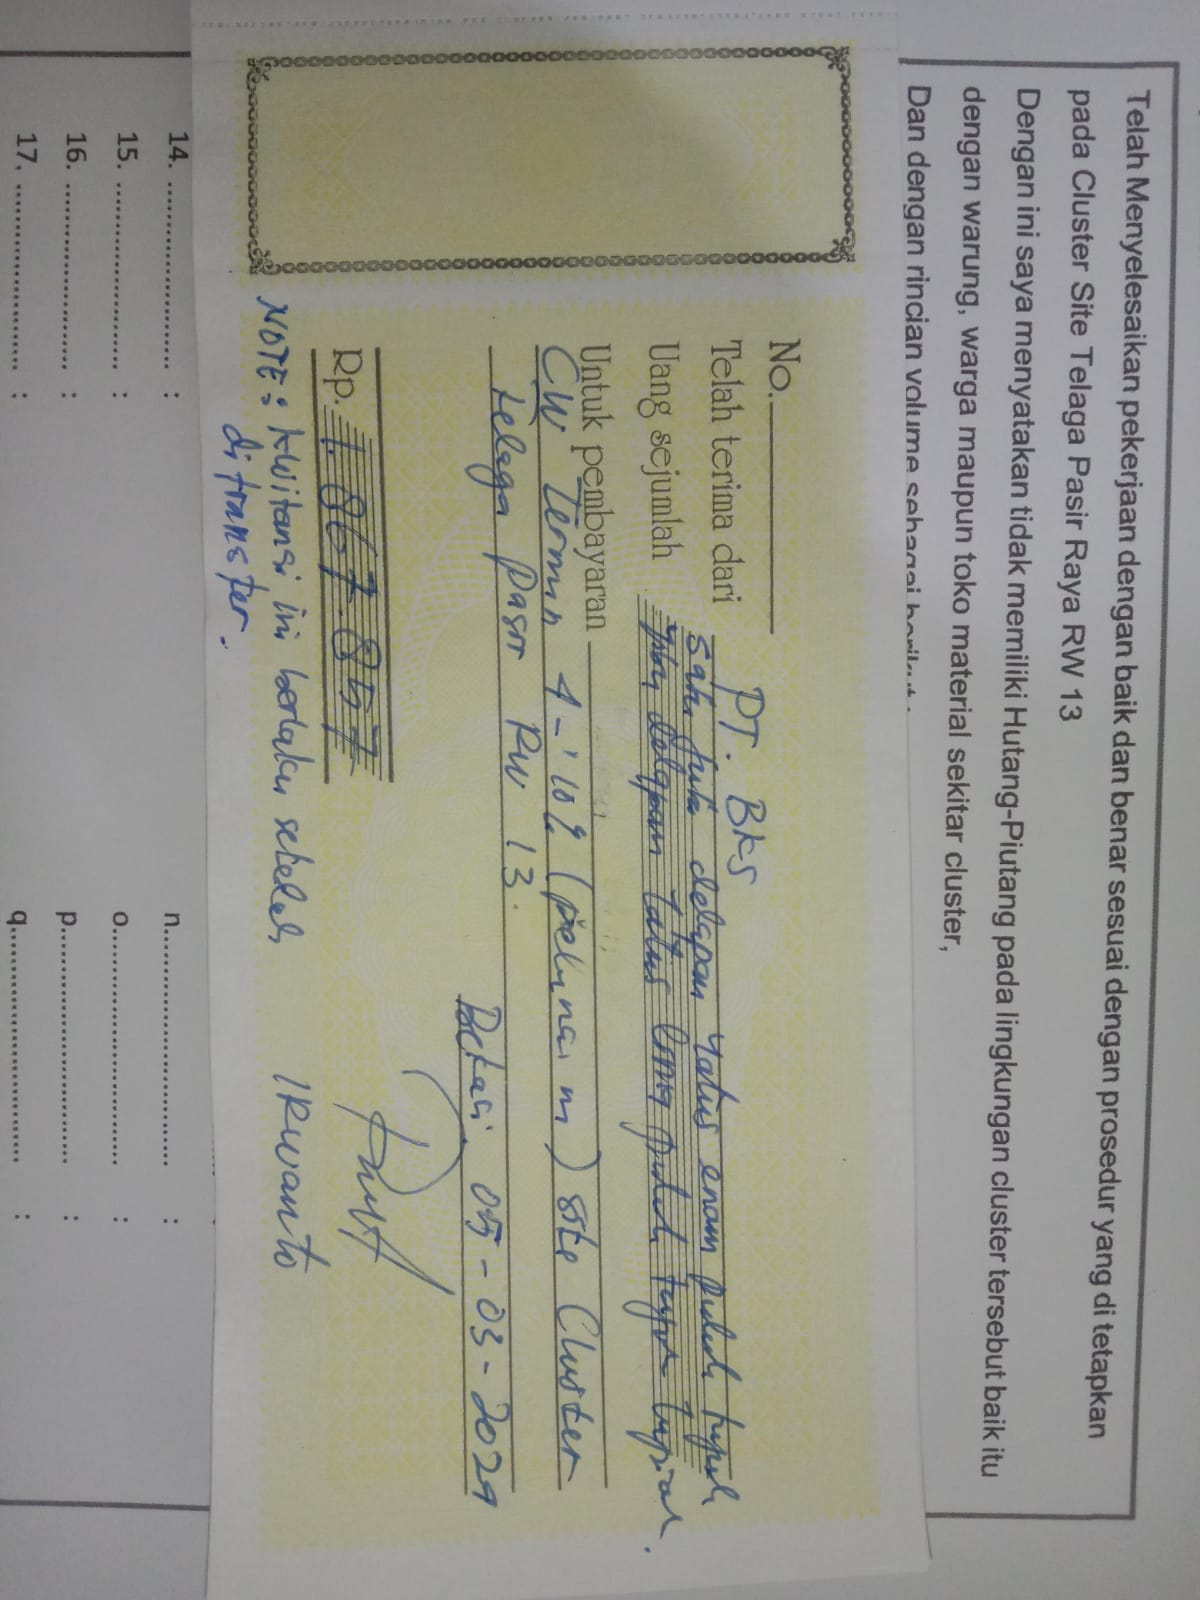 Telah Menyelesaikan pekerjaan dengan baik dan benar sesuai dengan prosedur yang di tetapkan
pada Cluster Site Telaga Pasir Raya RW 13
Dengan ini saya menyatakan tidak memiliki Hutang-Piutang pada lingkungan cluster tersebut baik itu
dengan warung, warga maupun toko material sekitar cluster,
Dan dengan rincian volume sebagai berikut :
No.
Telah terima dari PT. BKS
Uang sejumlah satu juta delapan ratus enam puluh tujuh
ribu delapan ratus lima puluh tujuh rupiah.
Untuk pembayaran
CW Termin 4 - 10% (pelunasan) site Cluster
Telaga Pasir RW 13.
Bekasi, 05 - 03 - 2024
Rp. 1.867.857
NOTE : kwitansi ini berlaku setelah
di transfer.
IRWANTO
14. .................... : n.......................... :
15. .................... : o.......................... :
16. .................... : p.......................... :
17. .................... : q.......................... :